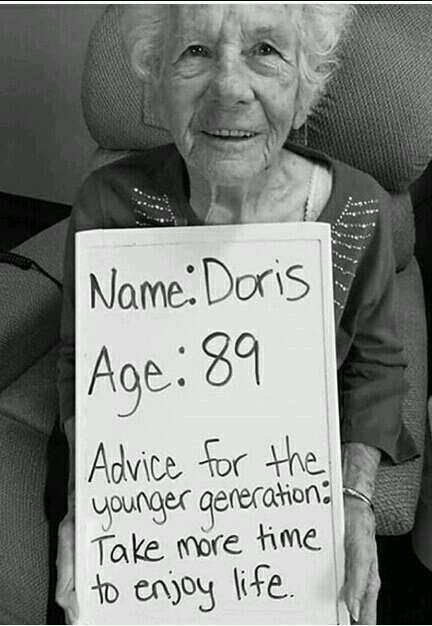 Name: Doris
Age: 89
Advice for the
younger generation:
Take more time
to enjoy life.